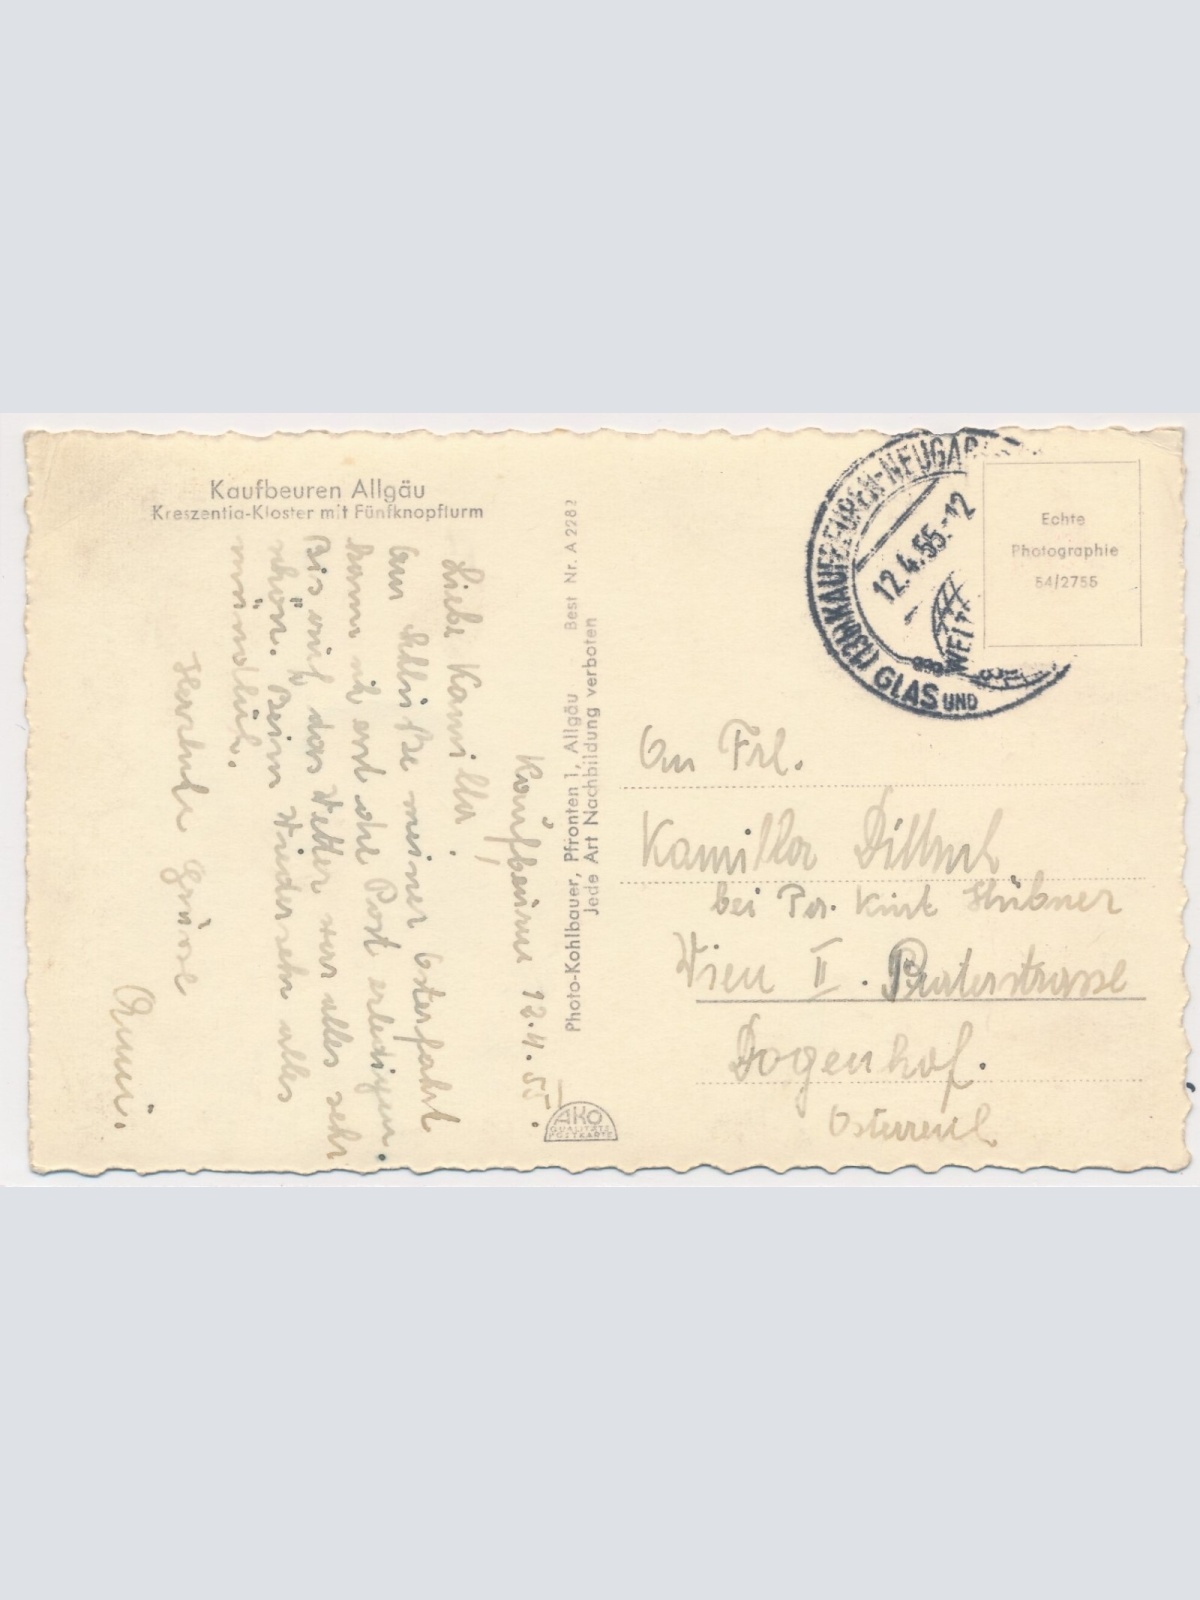 Kaufbeuren Allgäu
Kreszentia-Kloster mit Fünfknopfturm
Kaufbeuren 12.4.55.
Liebe Kamilla!
Am Schluße meiner Osterfahrt
kann ich erst die Post erledigen.
Bis auf das Wetter war alles sehr
schön. Beim Wiedersehn alles
mündlich.
Herzliche Grüsse
Photo-Kohlbauer, Pfronten 1, Allgäu Best Nr. A 2282
Jede Art Nachbildung verboten
AKO
QUALITÄTS
POSTKARTE
(13b) KAUFBEUREN-NEUGA
12.4.55.-12
GLAS UND
WELT
Echte
Photographie
54/2755
An Frl.
Kamilla
bei Kurt Hübner
Wien II. Praterstrasse
Dogenhof.
Österreich